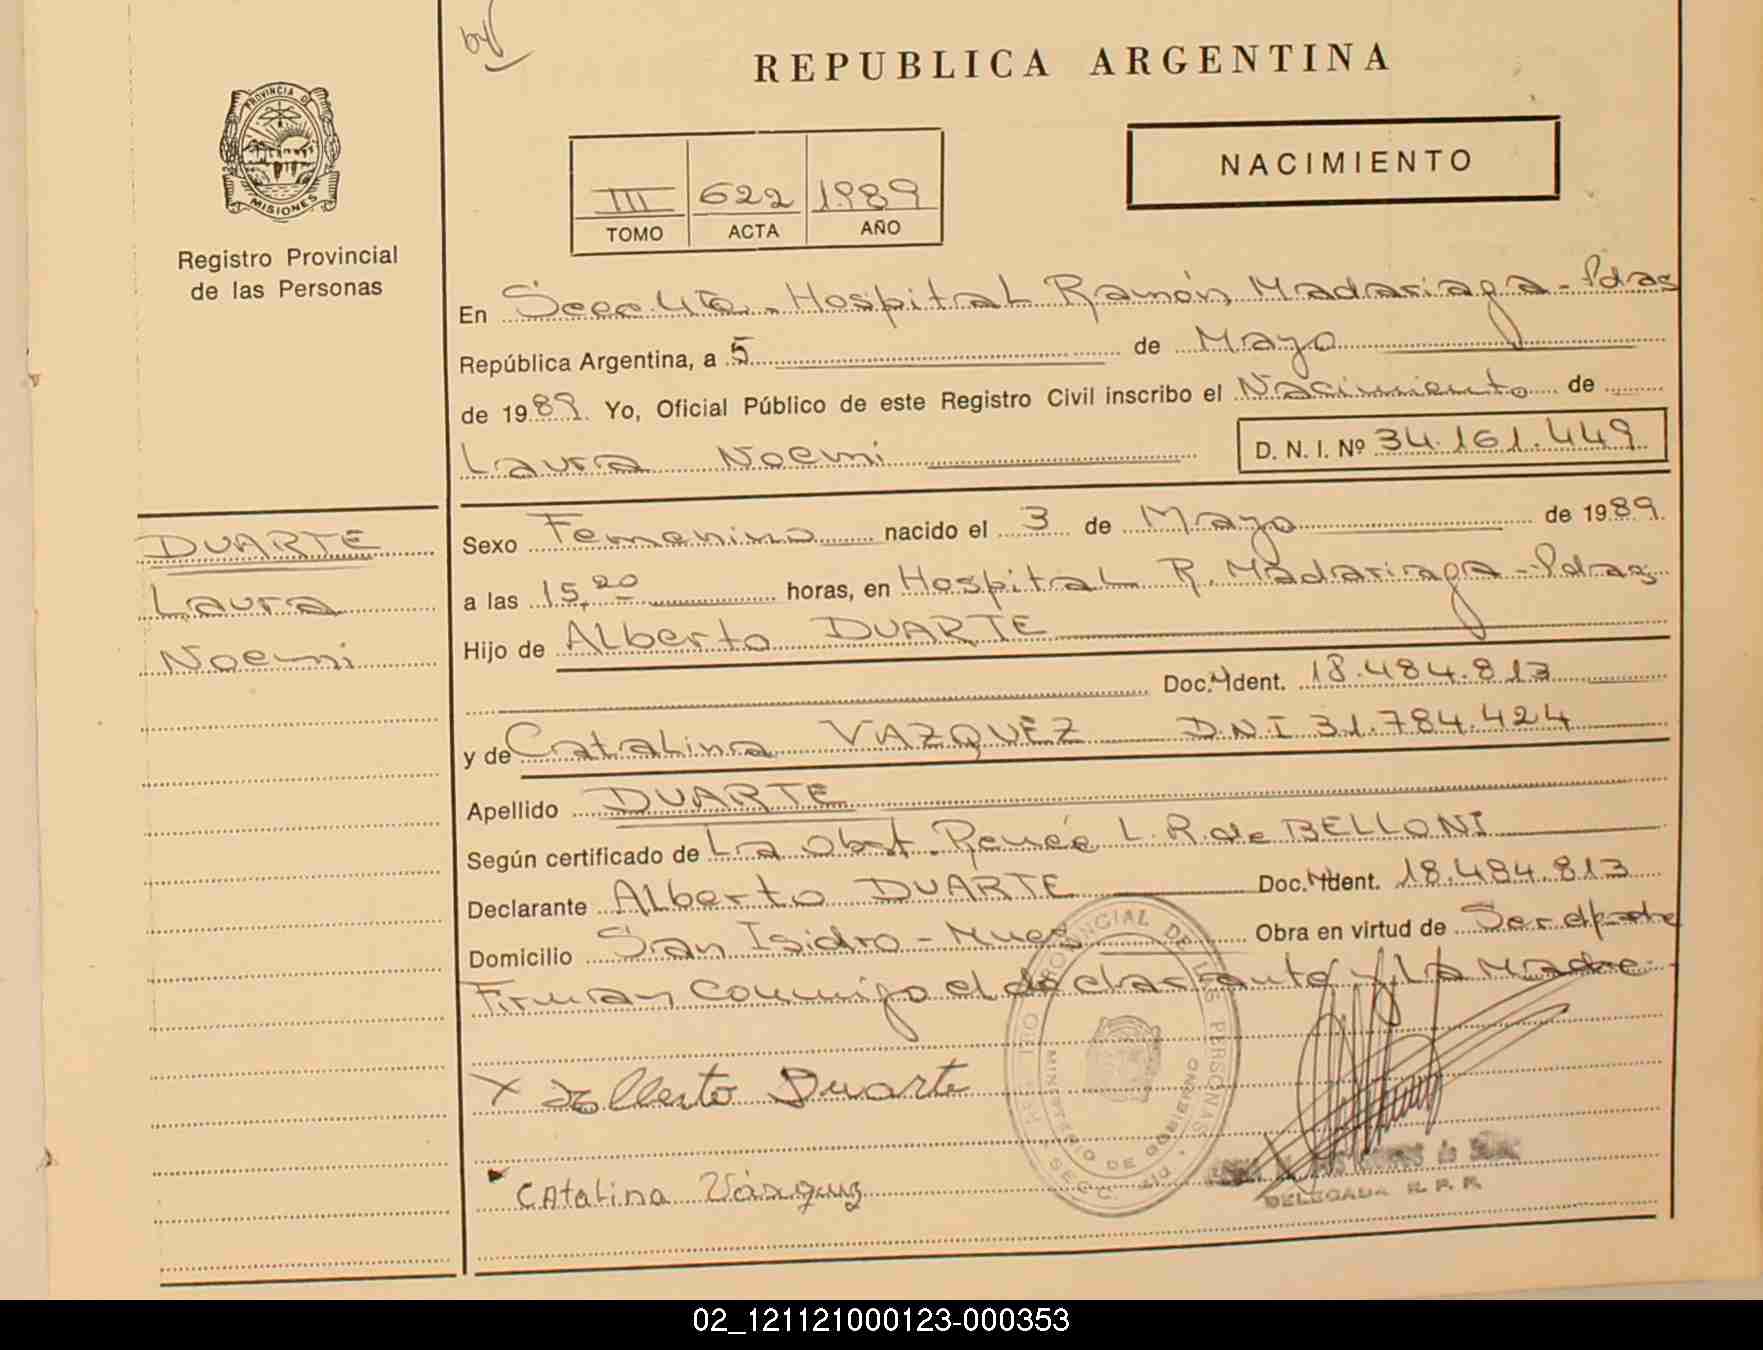 by
REPUBLICA ARGENTINA
PROVINCIA D
MISIONES
Registro Provincial
de las Personas
III 622 1989
TOMO ACTA AÑO
NACIMIENTO
En Secc. 4ta. Hospital Ramón Madariaga - Pdas
República Argentina, a 5 de Mayo
de 1989. Yo, Oficial Público de este Registro Civil inscribo el Nacimiento de
Laura Noemi D. N. I. Nº 34.161.449
DUARTE
Laura
Noemi
Sexo Femenino nacido el 3 de Mayo de 1989.
a las 15,20 horas, en Hospital R. Madariaga - Pdas
Hijo de Alberto DUARTE
Doc. Ident. 18.484.813
y de Catalina VAZQUEZ DNI 31.784.424
Apellido DUARTE
Según certificado de La Obst. Renée L. R. de BELLONI
Declarante Alberto DUARTE Doc. Ident. 18.484.813
Domicilio San Isidro - Obra en virtud de Ser el padre
Firman conmigo el declarante y la Madre.
PROVINCIAL DE LAS PERSONAS
MINISTERIO DE GOBIERNO
SECC.
X Alberto Duarte
Catalina Vázquez
DELEGADA R. P. P.
02_121121000123-000353